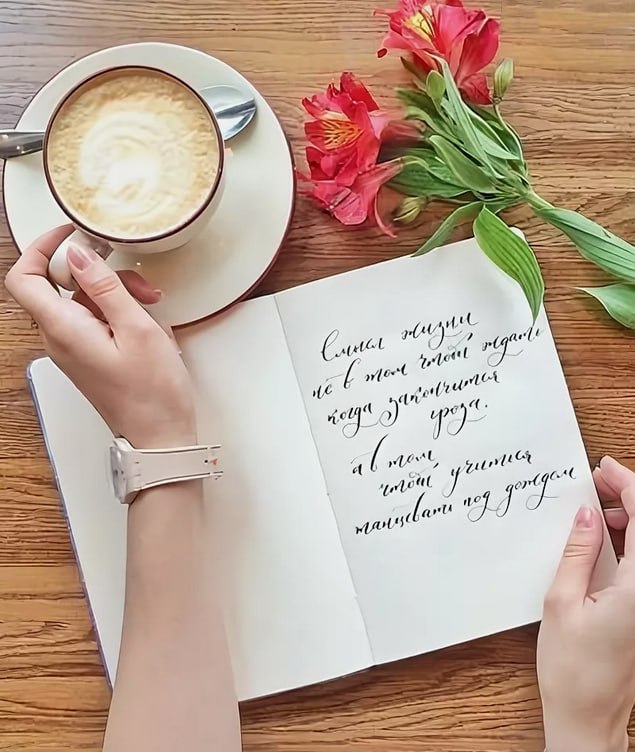 Смысл жизни
не в том чтоб ждать
когда закончится
гроза.
а в том
чтоб учится
танцевать под дождем